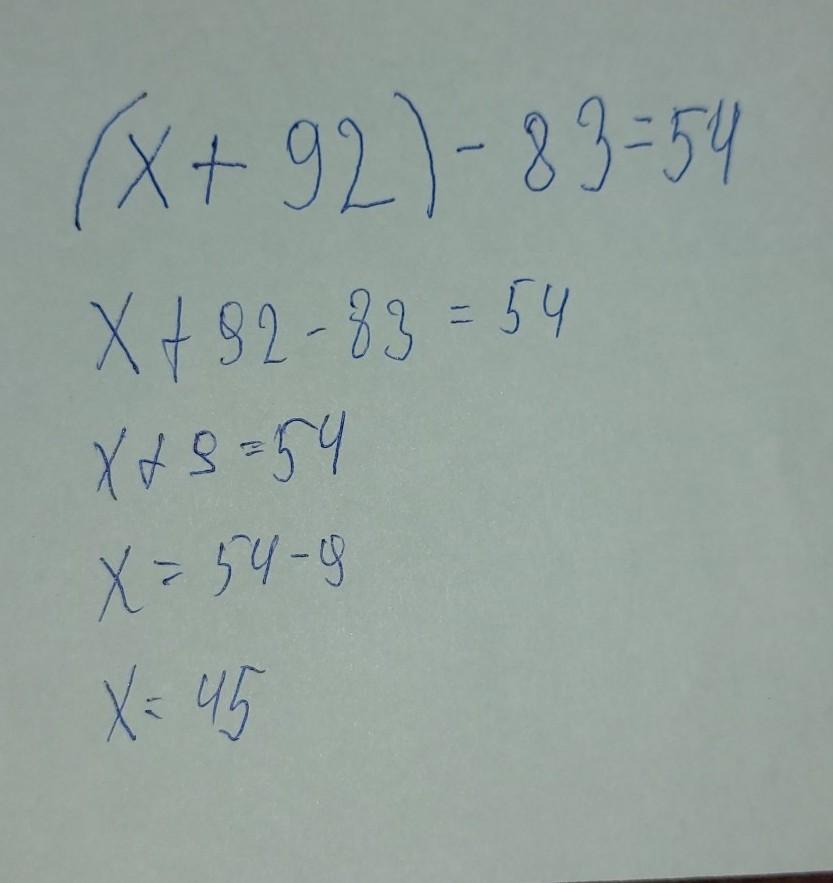 (x + 92) - 83 = 54
x + 92 - 83 = 54
x + 9 = 54
x = 54 - 9
x = 45